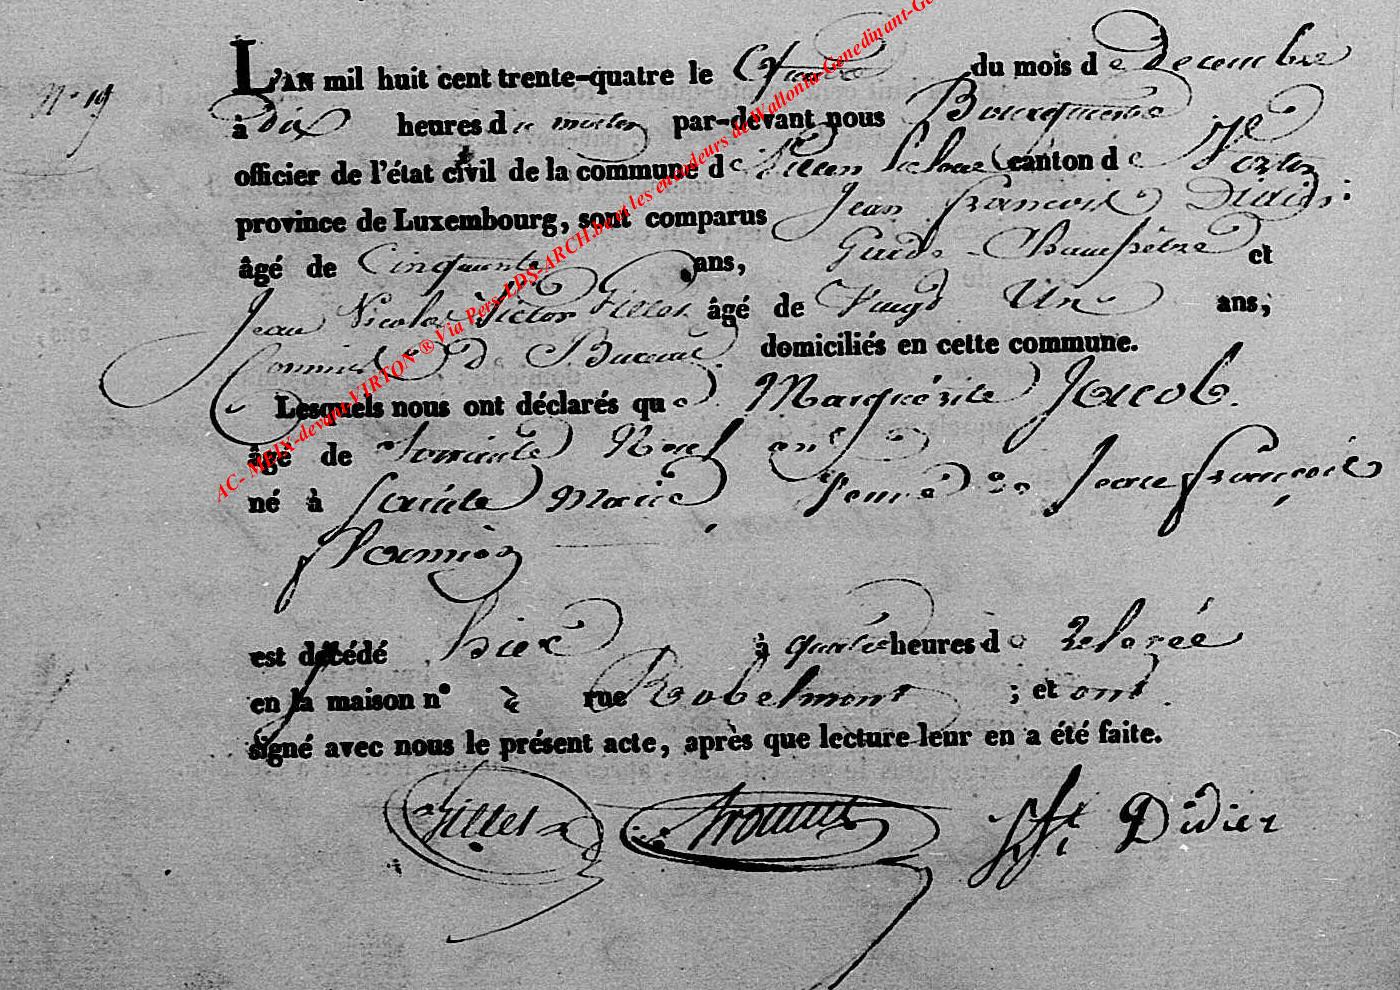 N.° 19
L'AN mil huit cent trente-quatre le quatre du mois de Decembre
à dix heures du matin par-devant nous Bourguemestre
officier de l'état civil de la commune de Villers la Loue canton de Virton
province de Luxembourg, sont comparus Jean François Didier
âgé de Cinquante ans, Garde Champêtre et
Jean Nicolas Victor Gillet âgé de Vingt Un ans,
Commis De Bureau domiciliés en cette commune.
Lesquels nous ont déclarés que Marguérite Jacob.
âgé de Soixante Neuf ans
né à Sainte Marie, Veuve de Jean françois
est décédé hier à quatre heures de relevée
en la maison n° à rue Robelmont ; et ont
signé avec nous le présent acte, après que lecture leur en a été faite.
Gillet Didier
AC- MEIX-devant-VIRTON ® Via Pers-LDS-ARCH.be et les encodeurs de Wallonia-Genedinant-Ge